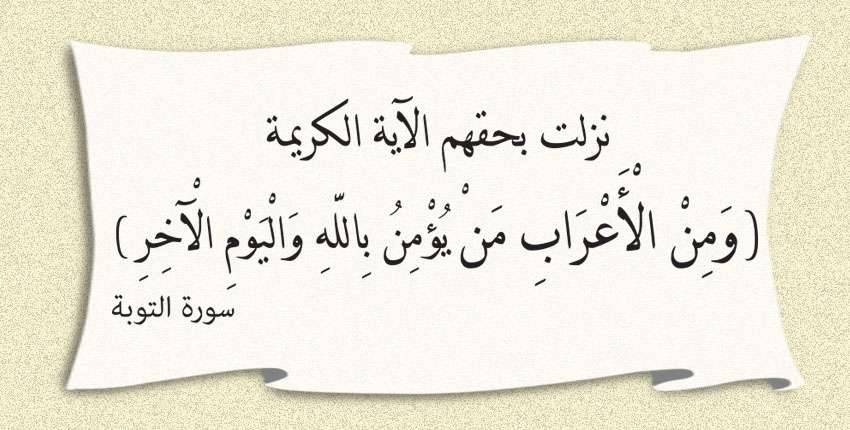 نزلت بحقهم الآية الكريمة
(وَمِنْ الْأَعْرَابِ مَنْ يُؤْمِنُ بِاللَّهِ وَالْيَوْمِ الْآخِرِ)
سورة التوبة